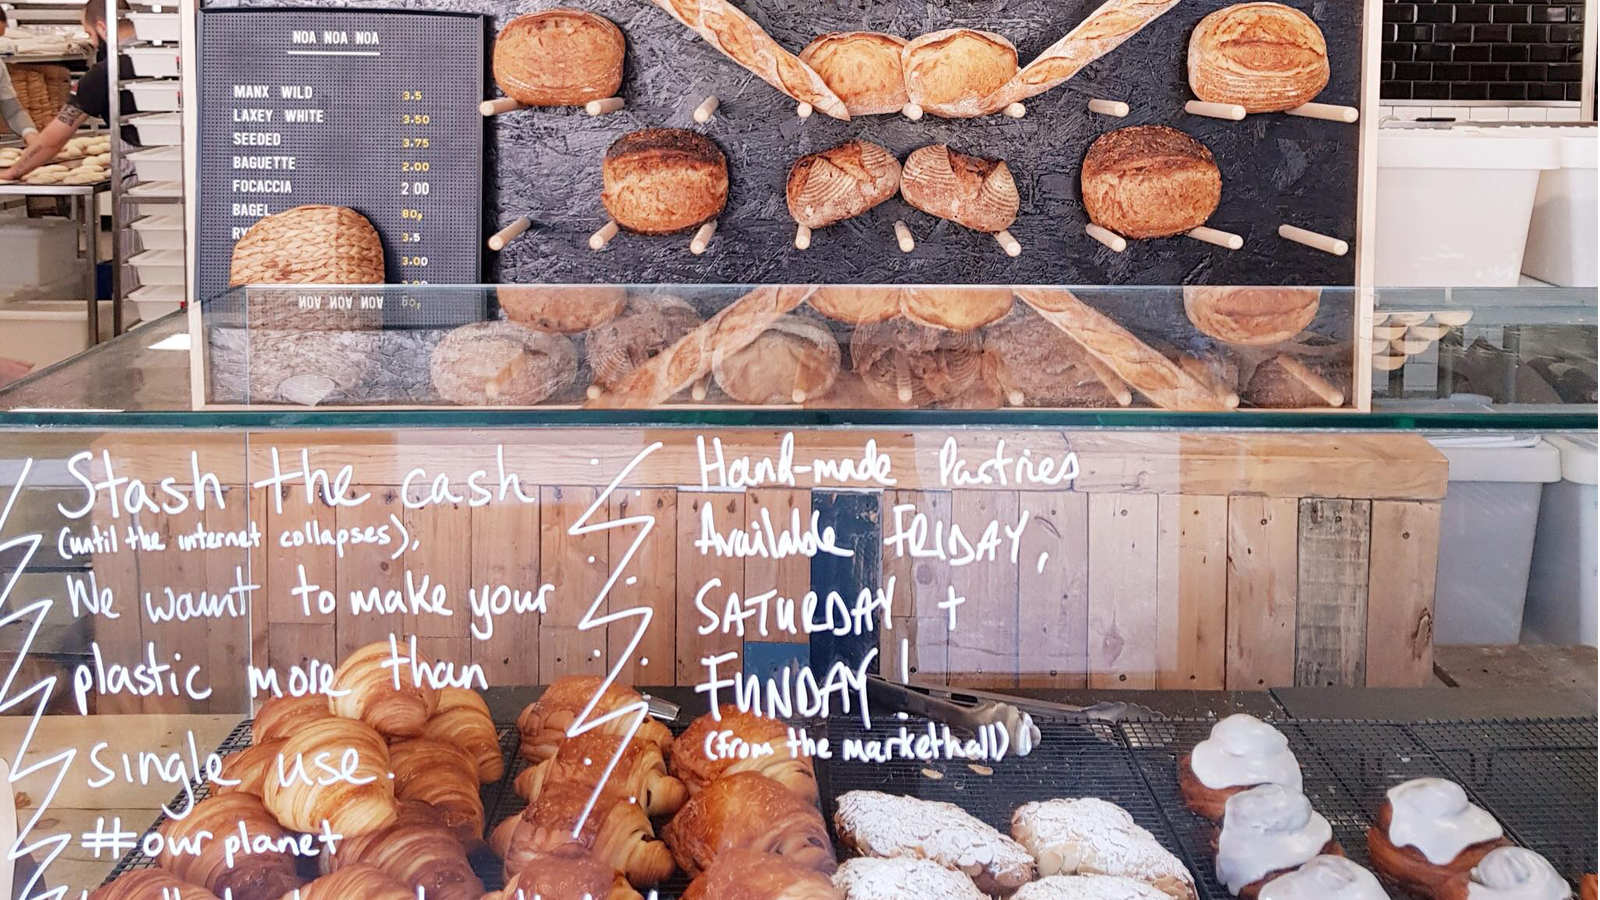 NOA NOA NOA
MANX WILD 3.5
LAXEY WHITE 3.50
SEEDED 3.75
BAGUETTE 2.00
FOCACCIA 2 00
BAGEL 80p
RY 3.5
3.00
NOA NOA NOA 60p
Stash the cash
(until the internet collapses).
We want to make your
plastic more than
single use.
#our planet
Hand-made Pastries
Available FRIDAY,
SATURDAY +
FUNDAY!
(from the markethall)